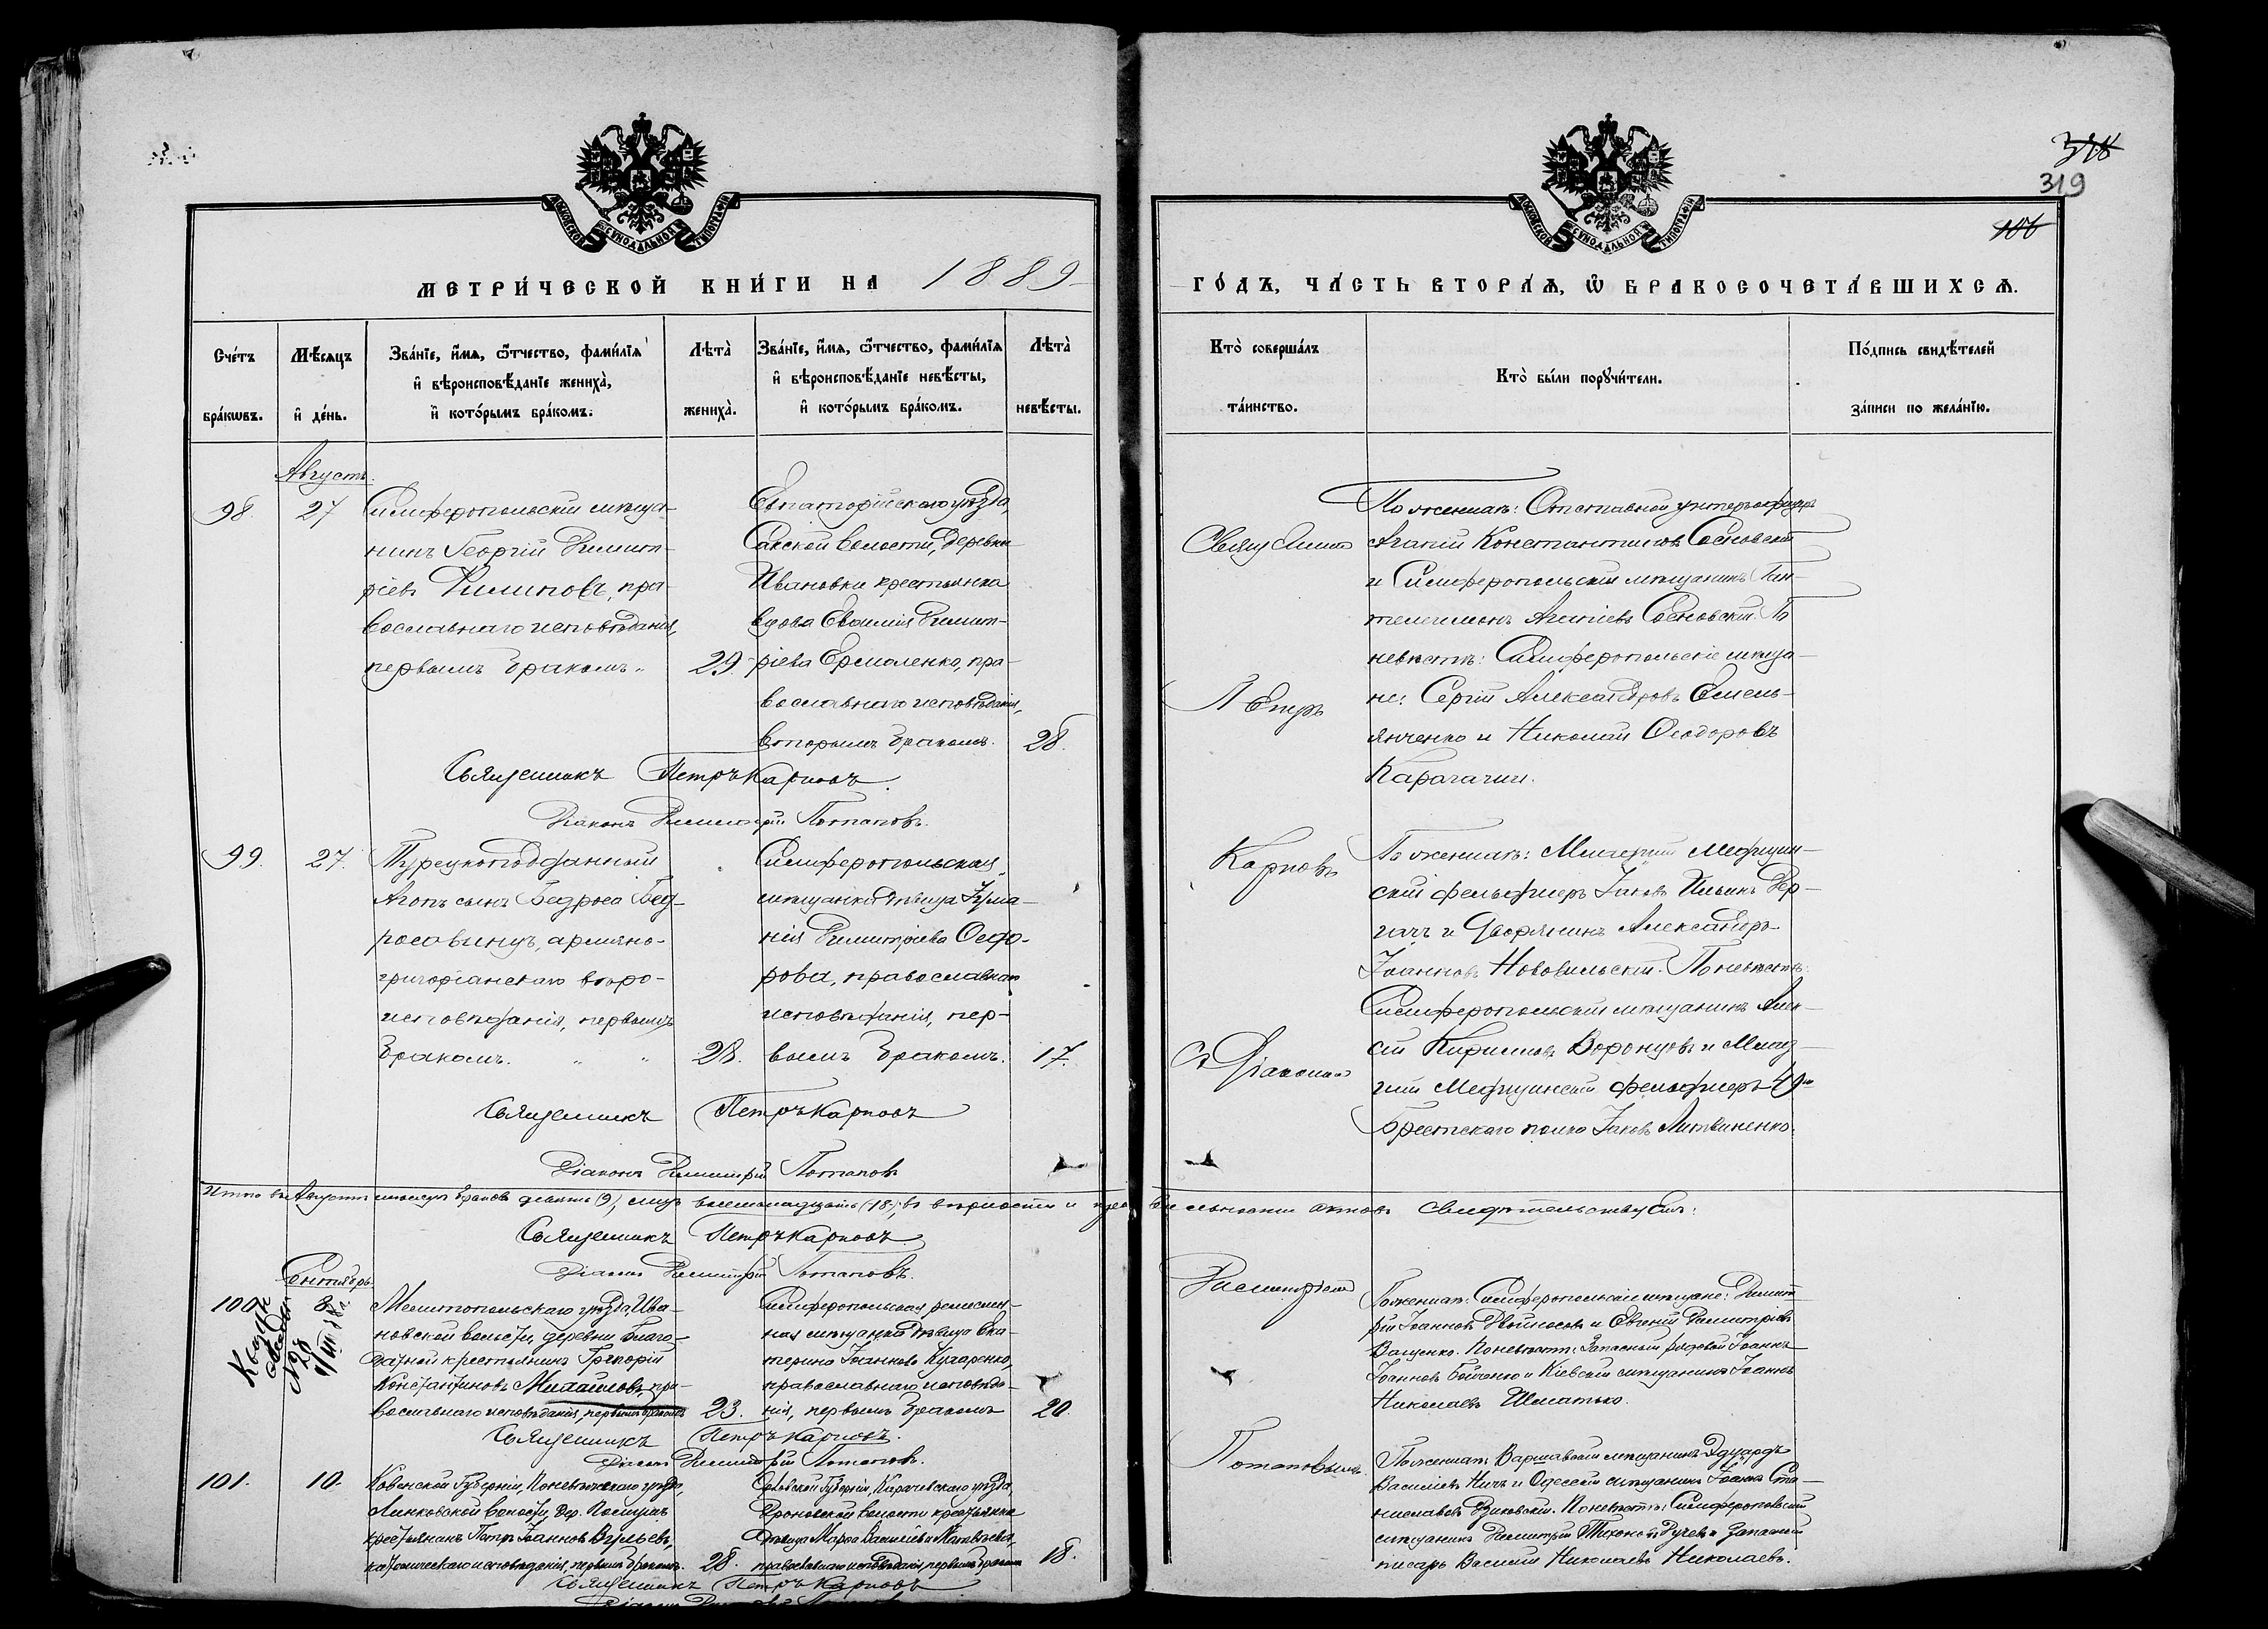 318
319
106
МОСКОВСКОЙ СѴНОДАЛЬНОЙ ТИПОГРАФІИ
МОСКОВСКОЙ СѴНОДАЛЬНОЙ ТИПОГРАФІИ
МЕТРИ́ЧЕСКОЙ КНИ́ГИ НА 1889
ГО́ДЪ, ЧА́СТЬ ВТОРА́Ѧ, Ѽ БРАКОСОЧЕТА́ВШИХСѦ.
Сче́тъ бра́кѡвъ.
Мѣ́сяцъ и҆ де́нь.
Зва́нїе, и҆́мѧ, ѻ҆́тчество, фами́лїѧ
и҆ вѣроисповѣ́данїе жениха̀,
и҆ кото́рымъ бра́комъ.
Лѣта̀ жениха̀.
Зва́нїе, и҆́мѧ, ѻ҆́тчество, фами́лїѧ
и҆ вѣроисповѣ́данїе невѣ́сты,
и҆ кото́рымъ бра́комъ.
Лѣта̀ невѣ́сты.
Кто̀ соверша́лъ та́инство.
Кто̀ бы́ли порꙋчи́тели.
По́дпись свидѣ́телей за́писи по жела́нїю.
Августъ.
98
27
Симферопольскій мѣща-
нинъ Георгій Димит-
ріевъ Филиповъ, пра-
вославнаго исповѣданія,
первымъ бракомъ
29.
Евпаторійскаго уѣзда,
Сакской волости, деревни
Ивановки крестьянка
вдова Евфимія Димит-
ріева Ермоленко, пра-
вославнаго исповѣданія,
вторымъ бракомъ.
28.
Священникъ Петръ Карповъ.
Діаконъ Димитрій Потаповъ.
По женихѣ: Отставной унтеръ-офицеръ
Агапій Константиновъ Сосновскій
и Симферопольскій мѣщанинъ Пан-
телеимонъ Агапіевъ Сосновскій. По
невѣстѣ: Симферопольскіе мѣща-
не: Сергій Александровъ Емель-
янченко и Николай Ѳеодоровъ
Карагачи.
Священникъ
Петръ
Карповъ
съ Діакономъ
Димитріемъ
Потаповымъ.
99.
27.
Турецкоподданный
Агопъ сынъ Бедроса Бед-
росовинцъ, армяно-
григоріанскаго вѣро-
исповѣданія, первымъ
бракомъ.
28.
Симферопольская
мѣщанка дѣвица
нія Димитріева Ѳедо-
рова, православнаго
исповѣданія, пер-
вымъ бракомъ.
17.
Священникъ Петръ Карповъ
Діаконъ Димитрій Потаповъ
По женихѣ: Младшій медицин-
скій фельдшеръ Іаковъ Ильинъ Дер-
качъ и Дворянинъ Александръ
Іоанновъ Нововильскій. По невѣстѣ:
Симферопольскій мѣщанинъ Алек-
сій Кириловъ Воронцовъ и Млад-
шій Медицинскій фельдшеръ 49го
Брестскаго полка Іаковъ Литвиненко.
Итого въ Августѣ мѣсяцѣ браковъ девять (9), лицъ восемнадцать (18); въ вѣрности и правильности актовъ свидѣтельствуемъ:
Священникъ Петръ Карповъ
Діаконъ Димитрій Потаповъ.
Сентябрь
100.
№ 28
Мелитопольскаго уѣзда, Ива-
новской волости, деревни Благо-
датной крестьянинъ Григорій
Константиновъ Михайловъ, пра-
вославнаго исповѣданія, первымъ бракомъ
23.
Симферопольская ремеслен-
ная мѣщанка дѣвица Ека-
терина Іоаннова Кухаренко,
православнаго исповѣда-
нія, первымъ бракомъ
20.
Священникъ Петръ Карповъ.
Діаконъ Димитрій Потаповъ.
По женихѣ: Симферопольскіе мѣщане: Димит-
рій Іоанновъ Двойносовъ и Евгеній Димитріевъ
Ващенко. По невѣстѣ: Запасный рядовой Іоаннъ
Іоанновъ Бойченко и Кіевскій мѣщанинъ Іоаннъ
Николаевъ Шматько.
101.
10.
Ковенской Губерніи, Поневѣжскаго уѣзда,
Линковской волости, дер.
крестьянинъ Петръ Іоанновъ Вульевъ,
католическаго исповѣданія, первымъ бракомъ.
28.
Орловской Губерніи, Карачевскаго уѣзда,
Дроновской волости крестьянка
дѣвица Марѳа Василіева Матвѣева,
православнаго исповѣданія, первымъ бракомъ
18.
Священникъ Петръ Карповъ
По женихѣ: Варшавскій мѣщанинъ Эдуардъ
Василіевъ Ничъ и Одесскій мѣщанинъ Іоаннъ Ста-
ниславовъ. По невѣстѣ: Симферопольскій
мѣщанинъ Димитрій Тихоновъ и Запасный
писарь Василій Николаевъ Николаевъ.